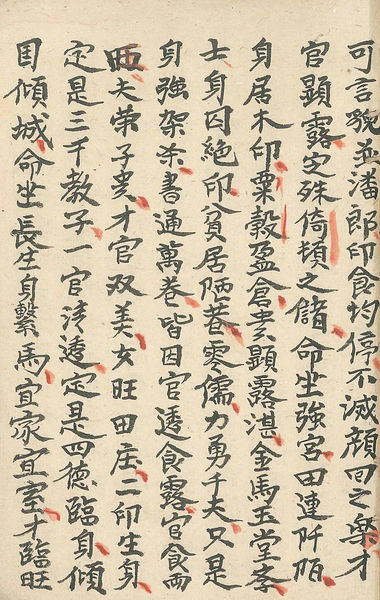 可言貌並潘郎印食均停不減顏回之樂才
官顯露定殊倚頓之儲命坐強宮田連阡陌
身居木印粟穀盈倉貴顯露湛金馬玉堂李
士身囚絕印貧居陋巷零儒力勇千夫只是
身強架杀書通萬卷皆因官透食露官食両
旺夫榮子貴才官双美女旺田庄二印生身
定是三千教子一官清透定是四德臨身傾
囯傾城命坐長生身繫馬宜家宜室才臨旺